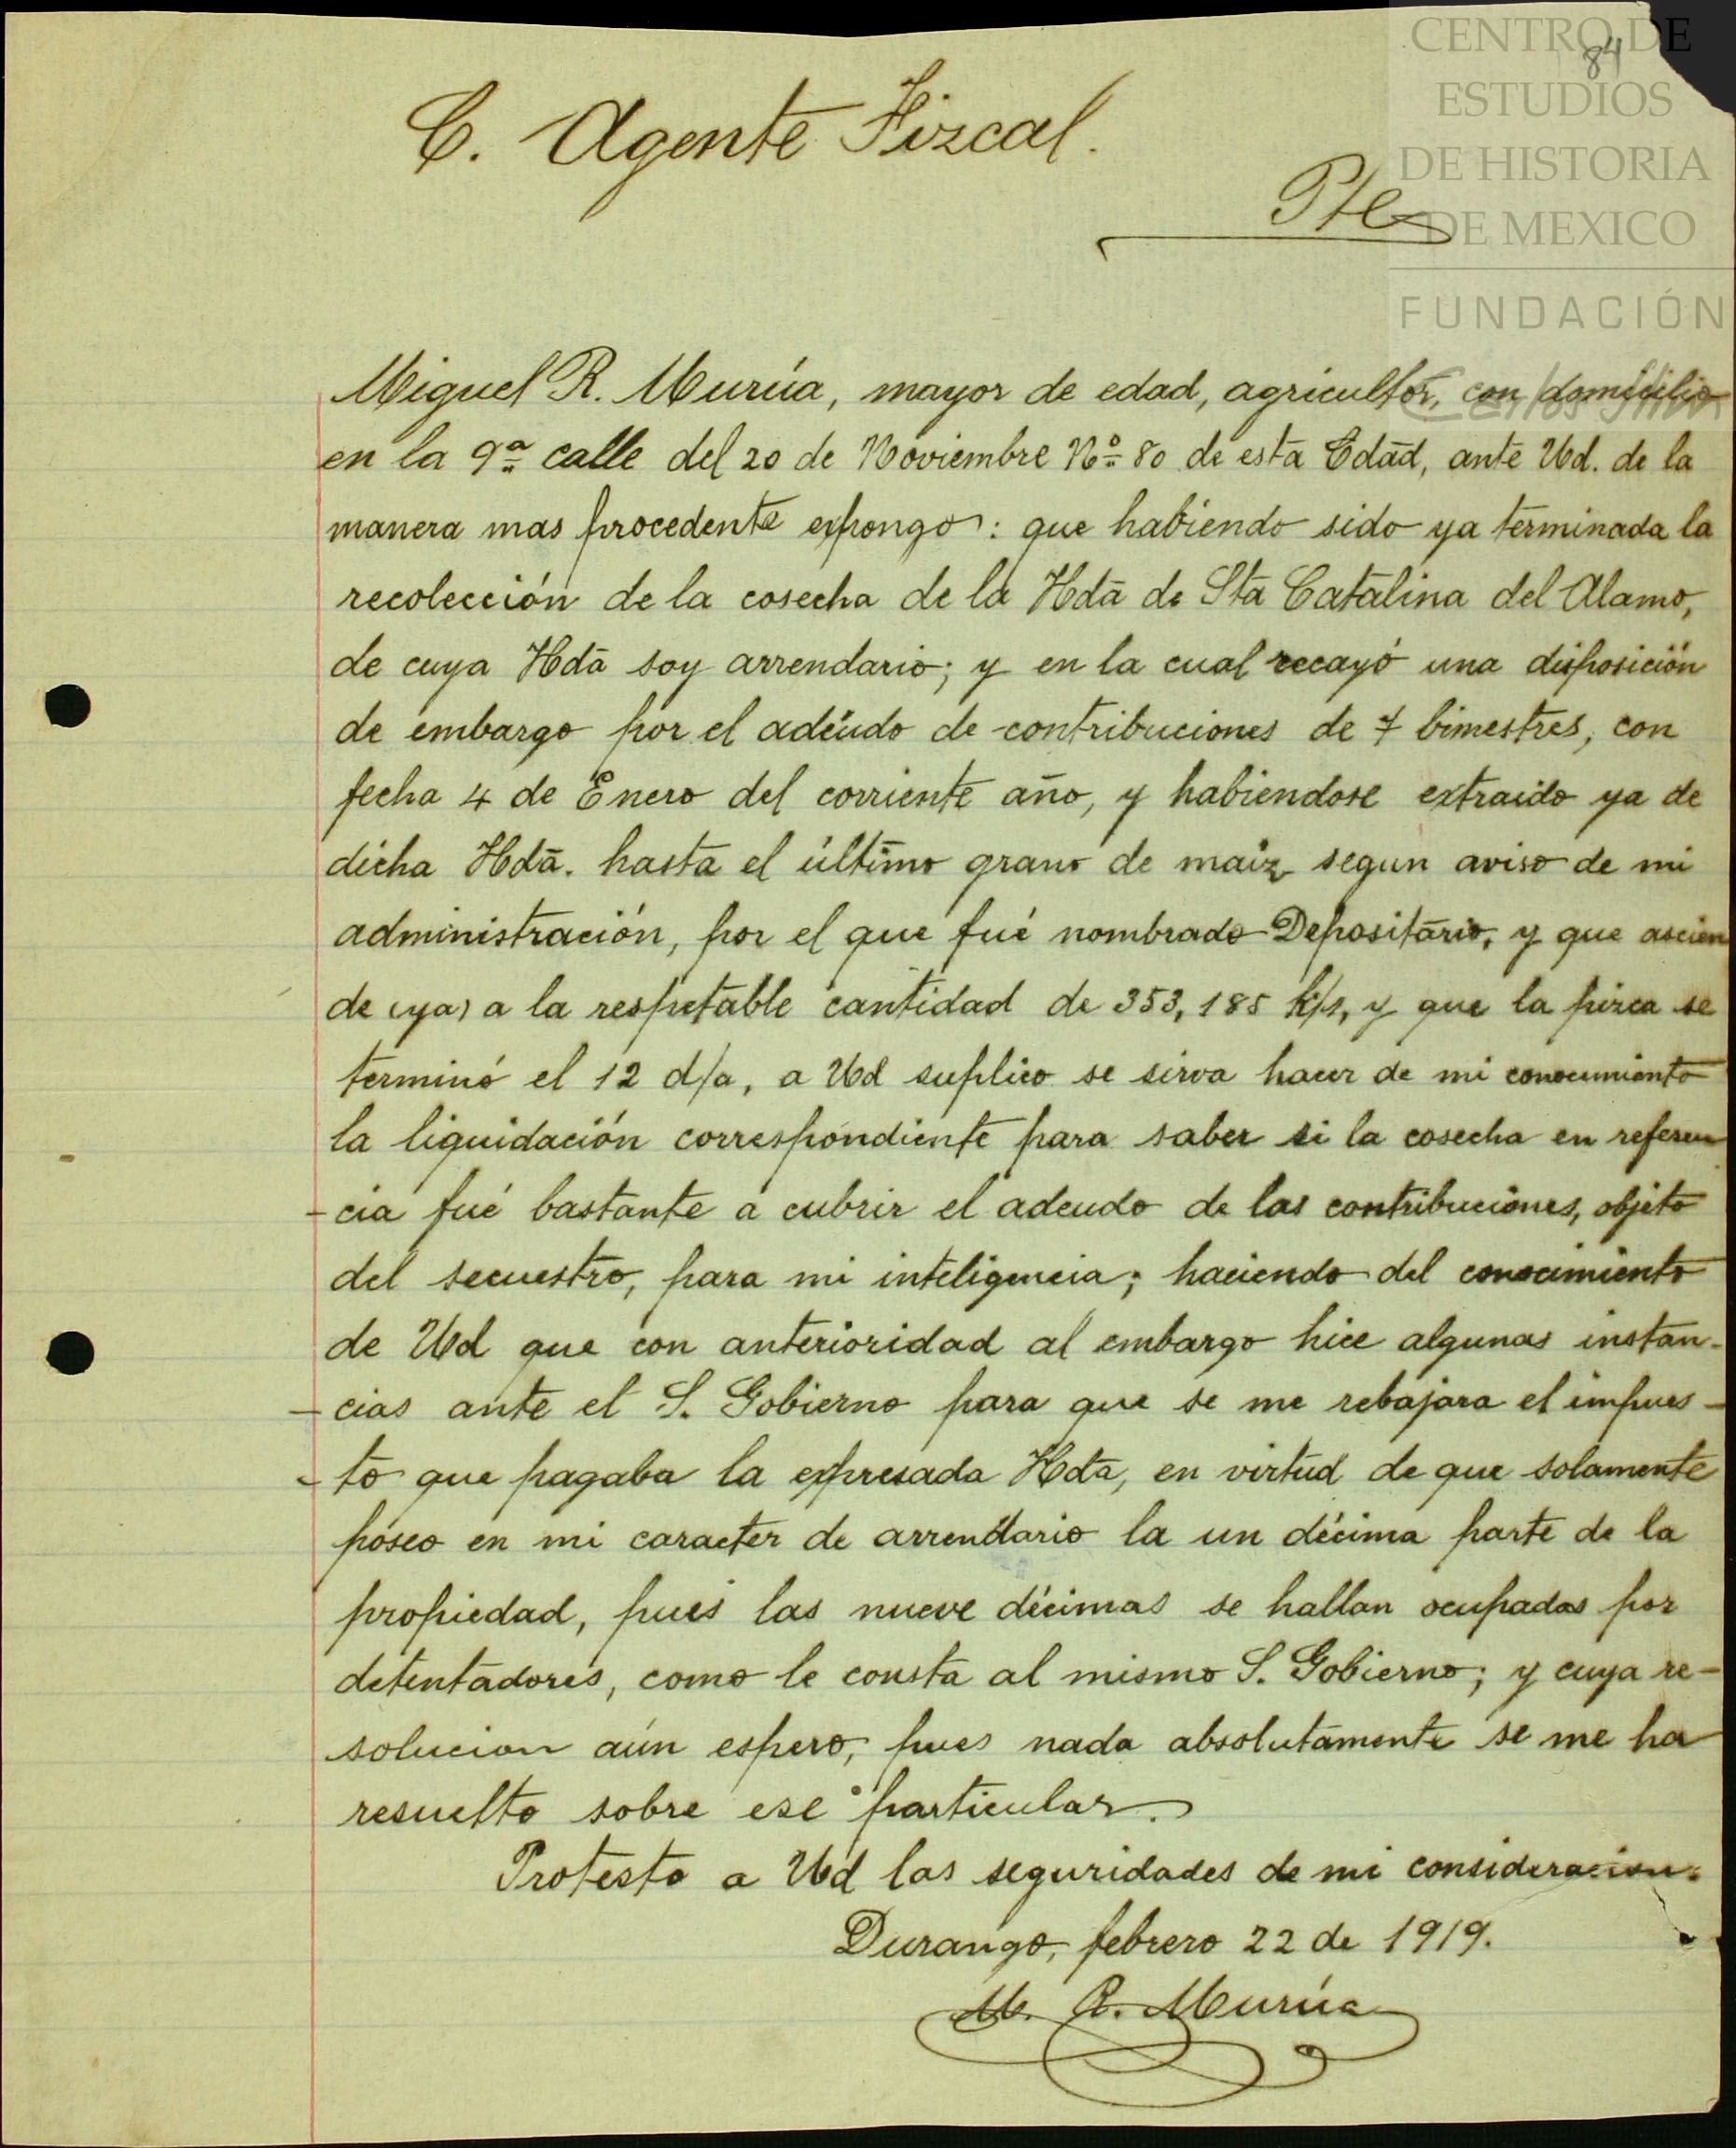 84
CENTRO DE
ESTUDIOS
DE HISTORIA
DE MEXICO
FUNDACIÓN
C. Agente Fizcal.
Pte
Miguel R. Murúa, mayor de edad, agricultor, con domicilio
en la 9ª calle del 20 de Noviembre Nº 80 de esta Cdad, ante Ud. de la
manera mas procedente expongo: que habiendo sido ya terminada la
recolección de la cosecha de la Hda de Sta Catalina del Alamo,
de cuya Hda soy arrendario; y en la cual recayó una disposición
de embargo por el adéudo de contribuciones de 7 bimestres, con
fecha 4 de Enero del corriente año, y habiendose extraido ya de
dicha Hda. hasta el último grano de maiz segun aviso de mi
administración, por el que fué nombrado Depositario, y que ascien
de (ya) a la respetable cantidad de 353,185 k/s, y que la pizca se
terminó el 12 d/a, a Ud suplico se sirva hacer de mi conocimiento
la liquidación correspondiente para saber si la cosecha en referen
-cia fué bastante a cubrir el adeudo de las contribuciones, objeto
del secuestro, para mi inteligencia; haciendo del conocimiento
de Ud que con anterioridad al embargo hice algunas instan-
-cias ante el S. Gobierno para que se me rebajara el impues-
-to que pagaba la expresada Hda, en virtud de que solamente
poseo en mi caracter de arrendario la un décima parte de la
propiedad, pues las nueve décimas se hallan ocupadas por
detentadores, como le consta al mismo S. Gobierno; y cuya re-
solucion aún espero, pues nada absolutamente se me ha
resuelto sobre ese particular.
Protesto a Ud las seguridades de mi consideracion.
Durango, febrero 22 de 1919.
M. R. Murúa